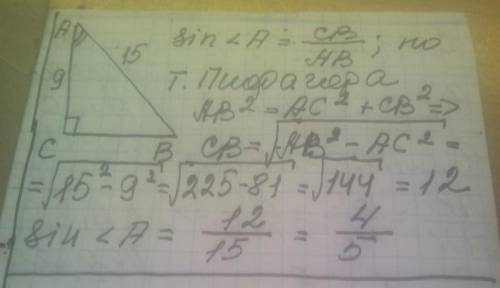 A
15
9
C B
sin <A = CB/AB ; по
т. Пифагора
AB² = AC² + CB² =>
CB = √AB² - AC² =
= √15² - 9² = √225-81 = √144 = 12
sin <A = 12/15 = 4/5